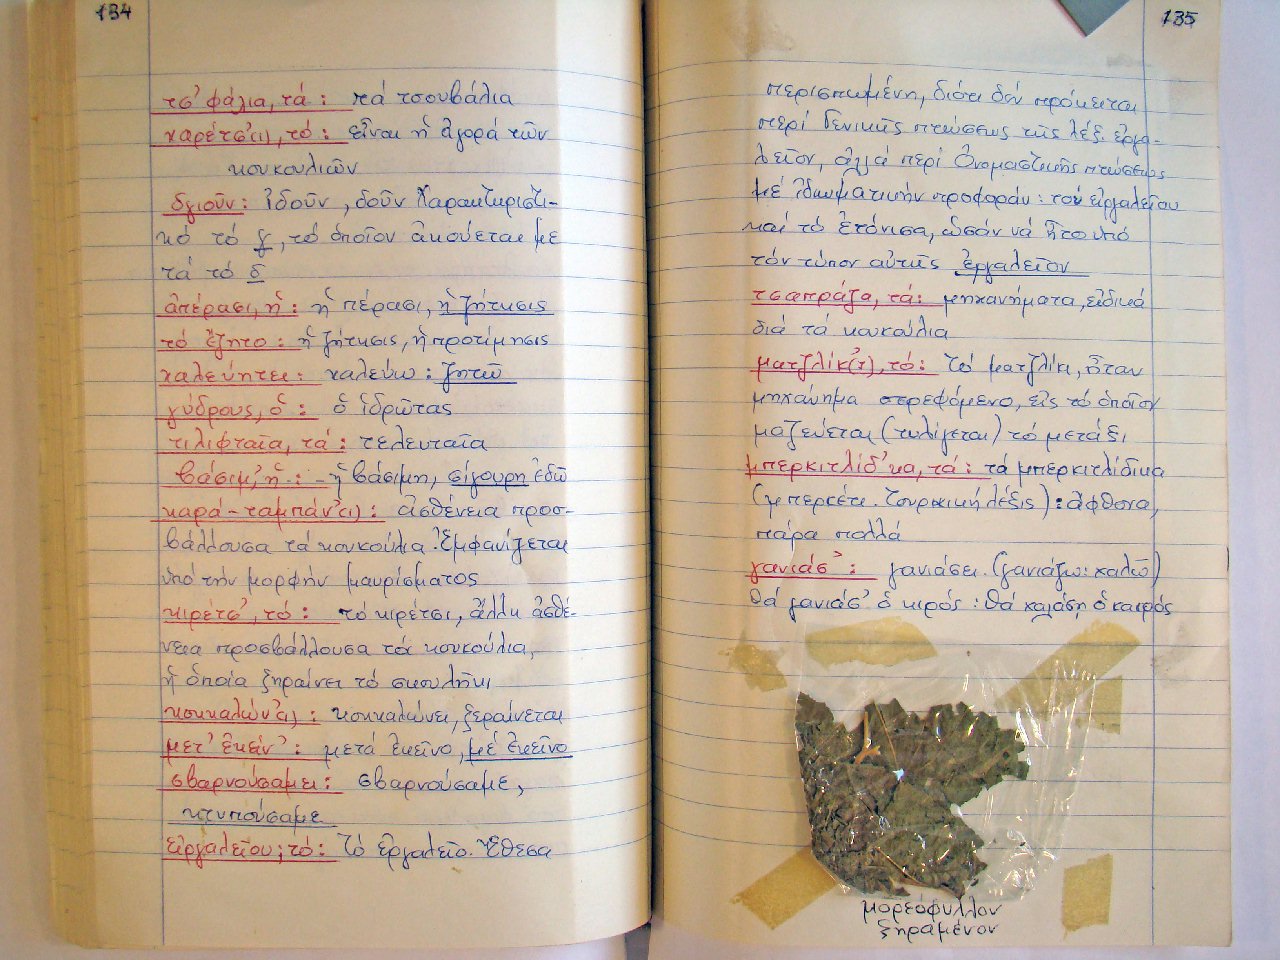 134
τσ' φάλια, τά: τά τσουβάλια
χαρέτσ'(ι), τό: εἶναι ἡ ἀγορά τῶν
κουκουλιῶν
δγιοῦν: ἰδοῦν, δοῦν Χαρακτηριστι-
κό τό γ, τό ὁποῖον ἀκούεται με
τά τό δ
ἀπέρασι, ἡ: ἡ πέρασι, ἡ ζήτησις
τό ἔζητο: ἡ ζήτησις, ἡ προτίμησις
χαλεύητει: χαλεύω: ζητῶ
γύδρους, ὁ: ὁ ἱδρῶτας
τιλιφταῖα, τά: τελευταῖα
βάσιμ', ἡ: - ἡ βάσιμη, σίγουρη ἐδῶ
καρά-ταμπάν'(ι): ἀσθένεια προσ-
βάλλουσα τά κουκούλια. Ἐμφανίζεται
ὑπό τήν μορφήν μαυρίσματος
κιρέτσ', τό: τό κιρέτσι, ἄλλη ἀσθέ-
νεια προσβάλλουσα τά κουκούλια,
ἡ ὁποία ξηραίνει τό σκουλῆκι
κοκκαλών'(ι): κοκκαλώνει, ξεραίνεται
μετ' ἐκείν': μετά ἐκεῖνο, μέ ἐκεῖνο
σβαρνούσαμει: σβαρνούσαμε,
κτυπούσαμε
εἰργαλεῖου; τό: Τό ἐργαλεῖο. Ἔθεσα
135
περισπωμένη, διότι δέν πρόκειται
περί γενικῆς πτώσεως τῆς λέξ. ἐργα-
λεῖον, ἀλλά περί Ὀνομαστικῆς πτώσεως
μέ ἰδιωματικήν προφοράν: τού εἰργαλεῖου
καί τό ἐτόνισα, ὡσάν νά ἦτο ὑπό
τόν τύπον αὐτῆς ἐργαλεῖον
τσαπράζα, τά: μηχανήματα, εἰδικά
διά τά κουκούλια
ματζλίκ(ι), τό: Τό ματζλίκι, ἦταν
μηχάνημα στρεφόμενο, εἰς τό ὁποῖον
μαζεύεται (τυλίγεται) τό μετάξι
μπερκιτλίδ'κα, τά: τά μπερκιτλίδικα
(μπερκέτι. Τουρκική λέξις): ἄφθονα,
πάρα πολλά
γανιάσ': γανιάσει. (γανιάζω: χαλῶ)
θά γανιάσ' ὁ κιρός: θά χαλάση ὁ καιρός
μορεόφυλλον
ξηραμένον